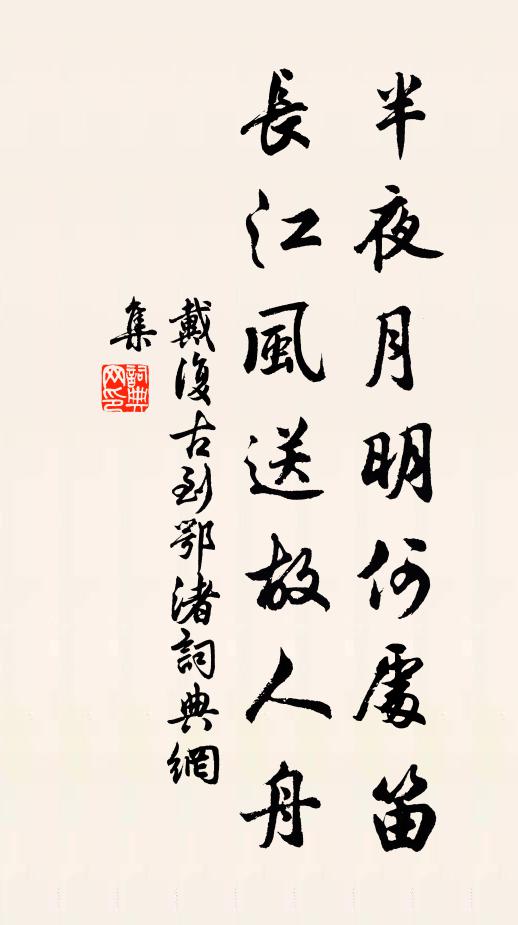 半夜月明何處笛
長江風送故人舟
戴復古到鄂渚詞典網
集
詞典
网印